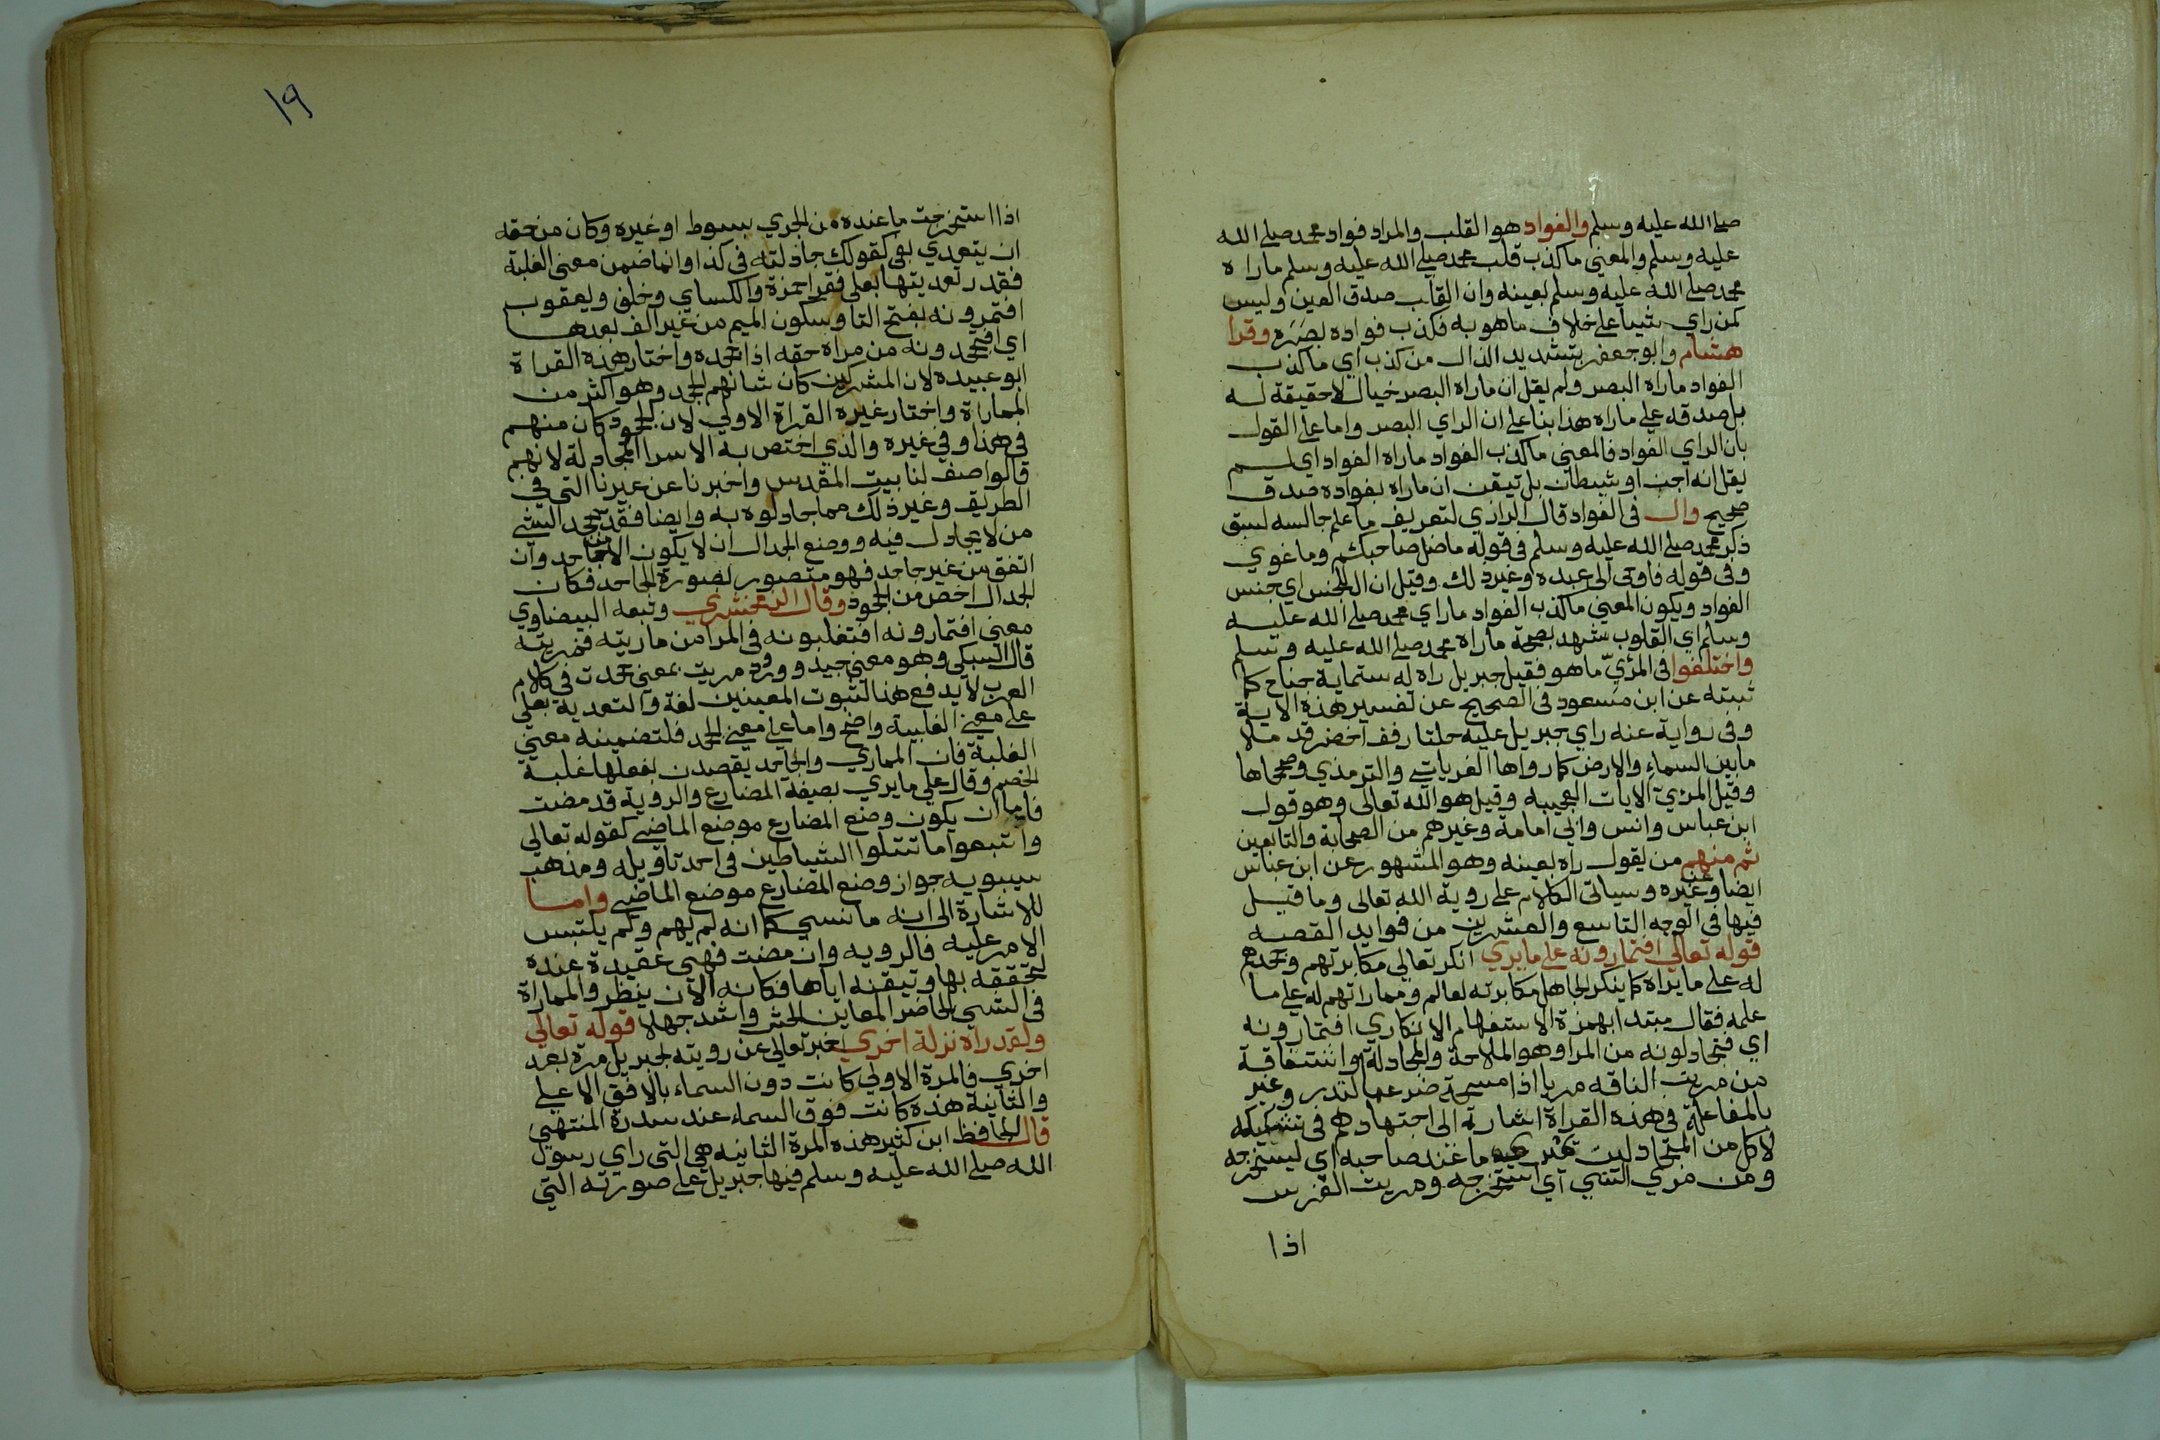 صلي الله عليه وسلم والفواد هو القلب والمراد فواد محمد صلي الله
عليه وسلم والمعني ما كذب قلب محمد صلي الله عليه وسلم ماراه
محمد صلي الله عليه وسلم بعينه وان القلب صدق العين وليس
كمن راي شيا علي خلاف ما هو به فكذب فواده بصره وقرا
هشام وابو جعفر بتشديد الذال من كذب اي ما كذب
الفواد ماراه البصر ولم يقل ان ماراه البصر خيال لا حقيقة له
بل صدقه علي ماراه هذا بنا علي ان الراي البصر واما علي القول
بان الراي الفواد فالمعني ما كذب الفواد ماراه الفواد اي لم
يقل انه اجن او شيطان بل تيقن ان ماراه بفواده صدق
صحيح وال في الفواد قال الرازي لتعريف ما علم حاله لسبق
ذكر محمد صلي الله عليه وسلم في قوله ما ضل صاحبكم وما غوي
وفي قوله فاوحي الي عبده وغير ذلك وقيل ان ال للجنس اي جنس
الفواد ويكون المعني ما كذب الفواد ماراي محمد صلي الله عليه
وسلم اي القلوب شهد بصحة ماراه محمد صلي الله عليه وسلم
واختلفوا في المرئي ما هو فقيل جبريل راه له ستماية جناح كما
ثبته عن ابن مسعود في الصحيح عن تفسير هذه الاية
وفي رواية عنه راي جبريل عليه حلتا رفف اخضر قد ملا
ما بين السماء والارض كما رواها الفريابي والترمذي وصححاها
وقيل المرئي الايات العجيبه وقيل هو الله تعالي وهو قول
ابن عباس وانس وابي امامة وغيرهم من الصحابة والتابعين
ثم منهم من يقول راه بعينه وهو المشهور عن ابن عباس
ايضا وعن غيره وسياتي الكلام علي روية الله تعالي وما قيل
فيها في الوجه التاسع والعشرين من فوايد القصه
قوله تعالي افتمارونه علي مايري انكر تعالي مكابرتهم وجحدهم
له علي ما يراه كما ينكر الجاهل مكابرته لعالم ومماراتهم له علي ما
علمه فقال مبتدا بهمزة الاستفهام الانكاري افتمارونه
اي فتجادلونه من المرا وهو الملاحة والمجادلة واشتقاقة
من مريت الناقه مريا اذا مسحت ضرعها لتدر وعبر
بالمفاعلة في هذه القراة اشارة الي اجتهادهم في تشكيكه
لان كل من المتجادلين ما عند صاحبه اي ليستخرجه
ومن مري الشي اي استخرجه ومريت الفرس
اذا
١٩
اذا استخرجت ما عنده من الجري بسوط او غيره وكان من حقه
ان يتعدي بفي كقولك جادلته في كذا وانما ضمن معني الغلبة
فقد ر تعديتها بعلي فقرا حمزة والكساي وخلف ويعقوب
افتمرونه بفتح التا وسكون الميم من غير الف بعدها
اي افتجحدونه من مراه حقه اذا جحده واختار هذه القراة
ابو عبيده لان المشركين كان شانهم الجحد وهو اكثر من
المماراة واختار غيره القراة الاولي لان الجحود كان منهم
في هذا وفي غيره والذي اختص به الاسرا المجادلة لانهم
قالوا صف لنا بيت المقدس واخبرنا عن عيرنا التي في
الطريق وغير ذلك مما جادلوه به وايضا فقد يجحد الشي
من لا يجادل فيه ووضع الجدال ان لا يكون الا من جاحد وان
اتفق من غير جاحد فهو متصور بصورة الجاحد فكان
الجدال اخص من الجحود وقال الزمخشري وتبعه البيضاوي
معني افتمارونه افتغلبونه في المرا من ماريته فمريته
قال السبكي وهو معني جيد وورود مريت بمعني جحدت في كلام
العرب لا يدفع هذا لثبوت المعينين لغة والتعديه بعلي
علي معني الغلبة واضح واما علي معني الجحد فلتضمينه معني
الغلبة فان المماري والجاحد يقصدن بفعلها غلبه
الخصم وقال علي مايري بصيغة المضارع والروية قد مضت
فاما ان يكون وضع المضارع موضع الماضي كقوله تعالي
واتبعوا ما تتلوا الشياطين في احد تاويله ومذهب
سيبويه جواز وضع المضارع موضع الماضي واما
للاشارة الي انه ما نسي كما انه لم يهم ولم يلتبس
الامر عليه فالرويه وان مضت فهي عقيدة عنده
لتحققه بها وتيقنه اياها فكانه الان ينظر والمماراة
في الشي الحاضر المعاين افحش واشد جهلا قوله تعالي
ولقد راه نزلة اخري اخبر تعالي عن رويته لجبريل مرة بعد
اخري فالمرة الاولي كانت دون السماء بالافق الاعلي
والثانية هذه كانت فوق السماء عند سدرة المنتهي
قال الحافظ ابن كثير هذه المرة الثانيه هي التي راي رسول
الله صلي الله عليه وسلم فيها جبريل علي صورته التي